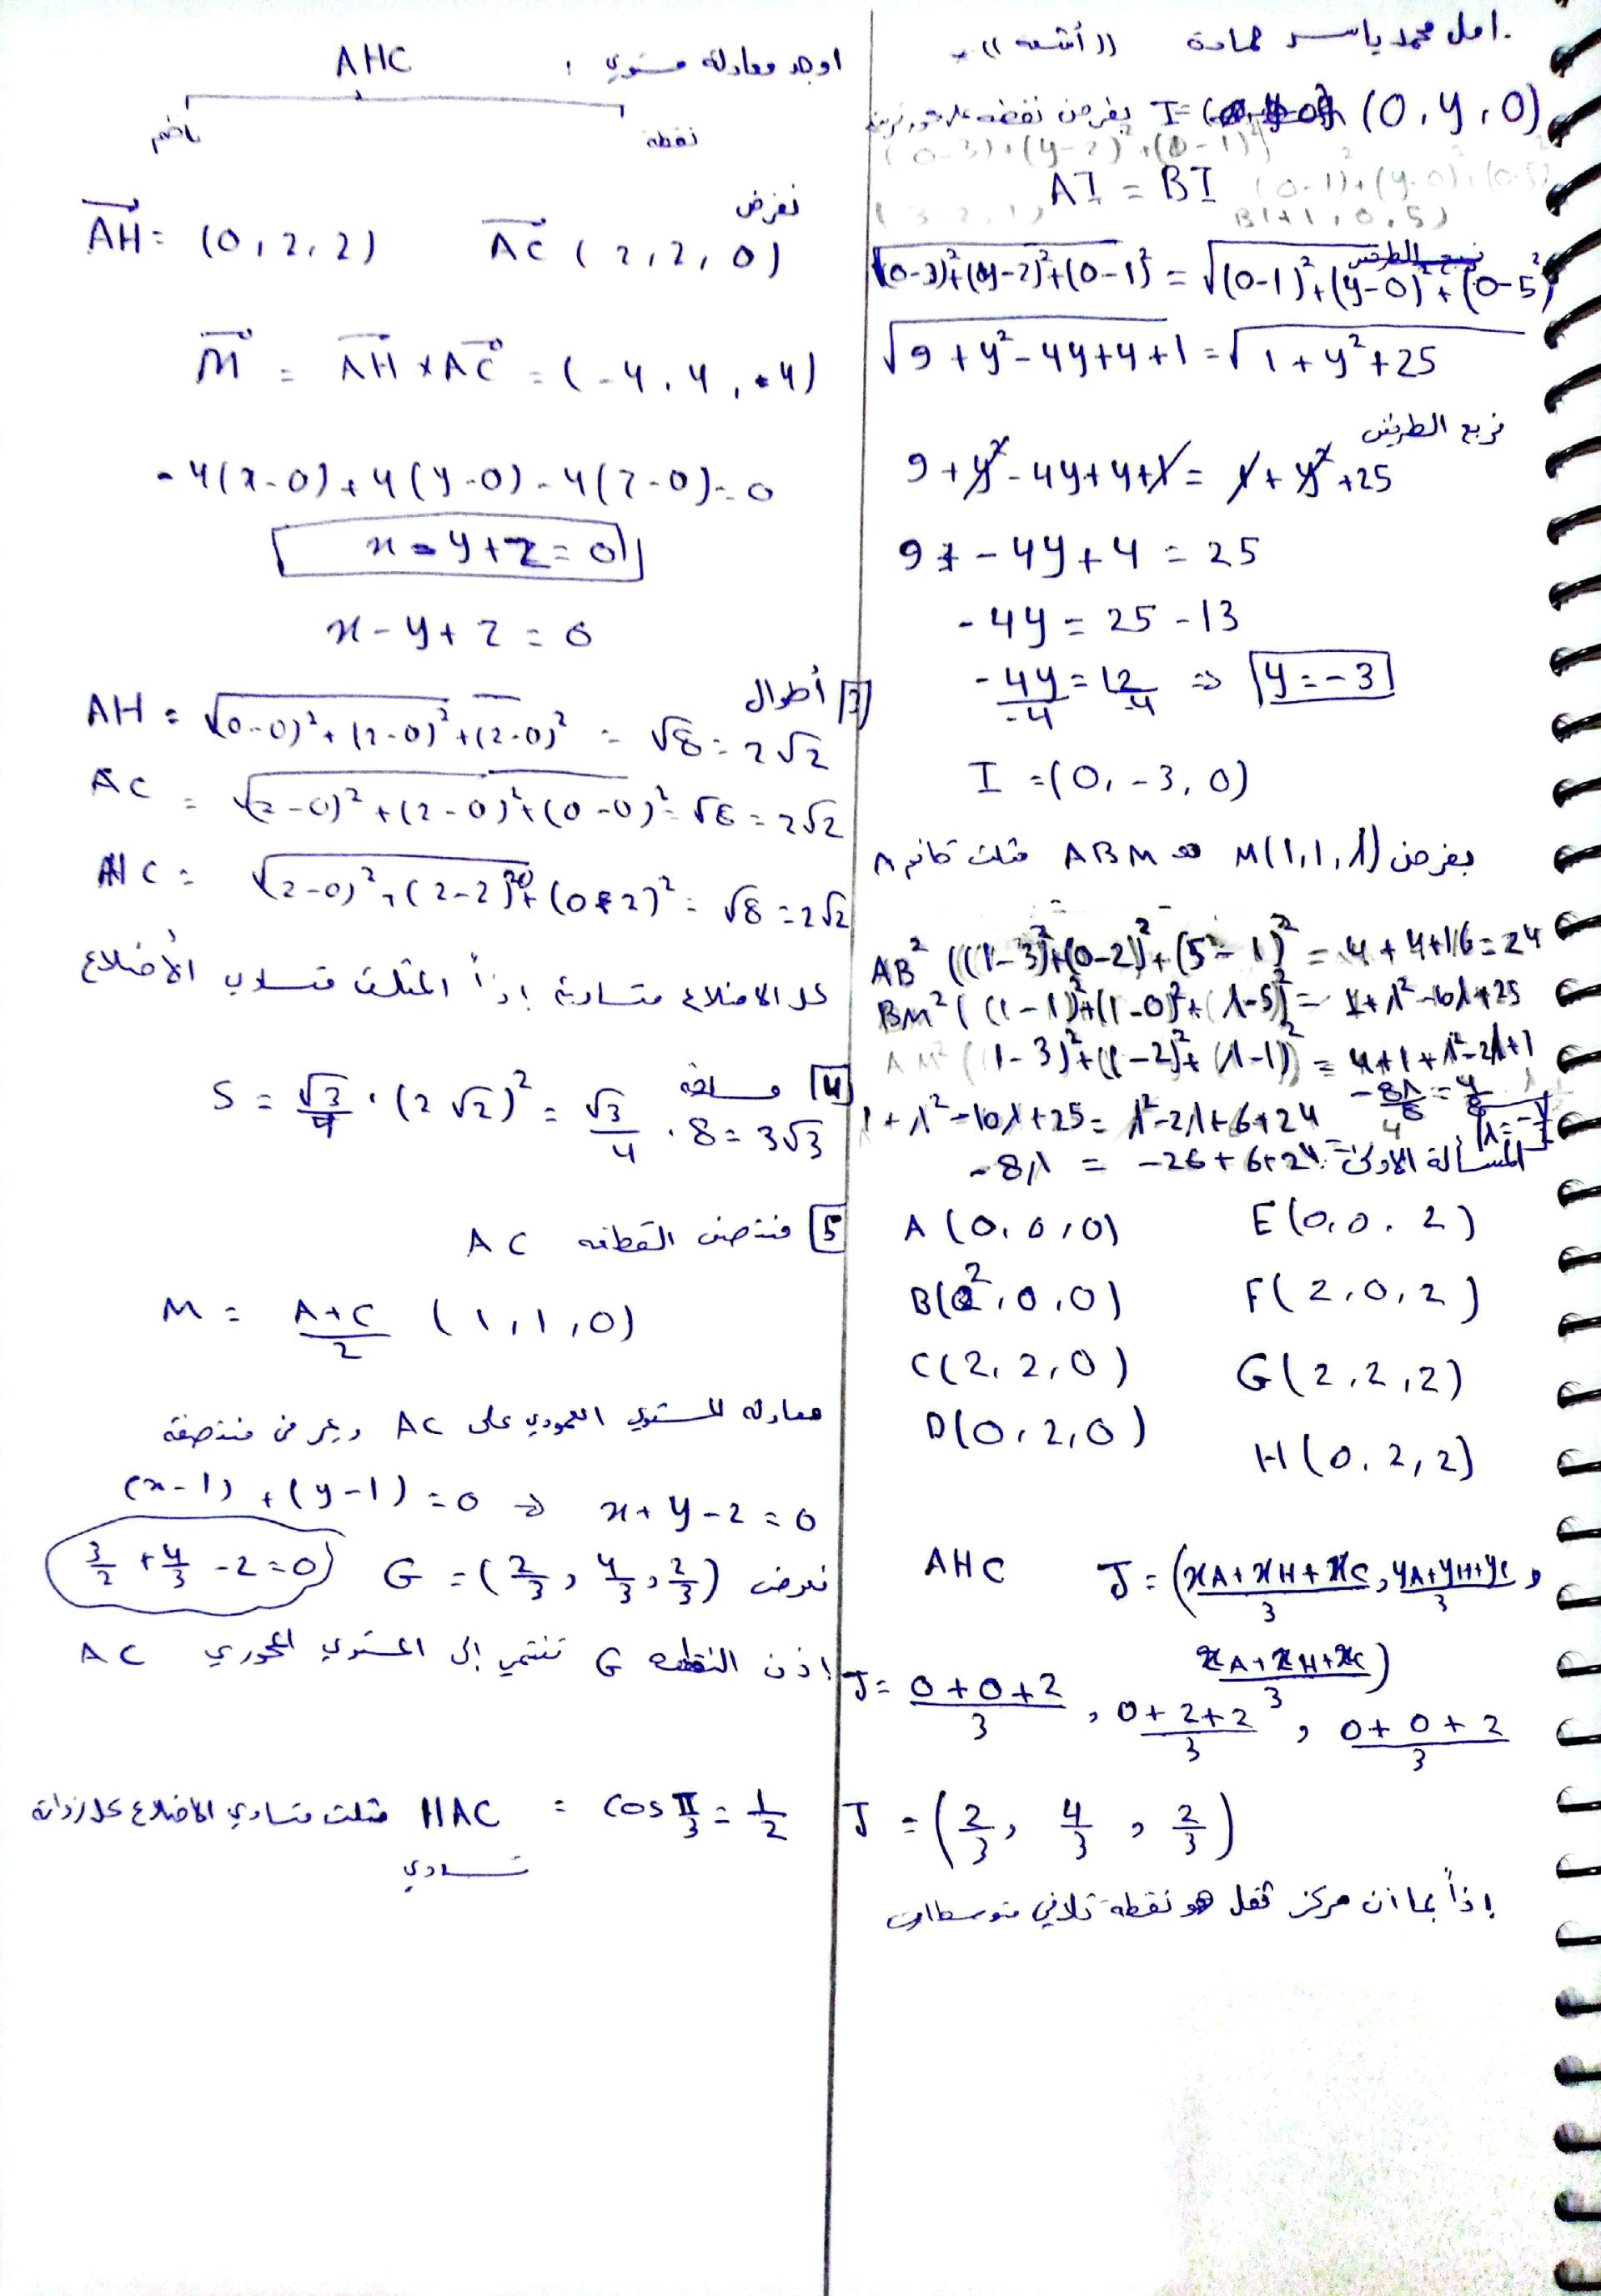 امل محمد ياسر حمادة ((أشعه))
بفرض نقطة على محور تراتيب I = (0, y, 0)
(0-3)+(y-2)²+(0-1)²
AI = BI
(0-1)²+(y-0)²+(0-5)
(3, 2, 1)
B(+1, 0, 5)
نربع الطرفين
√(0-3)²+(y-2)²+(0-1)² = √(0-1)²+(y-0)²+(0-5)²
√9+y²-4y+4+1 = √1+y²+25
نربع الطرفين
9+y²-4y+4+1 = 1+y²+25
9+-4y+4 = 25
-4y = 25-13
-4y/-4 = 12/-4 ⇒ y = -3
I = (0, -3, 0)
بفرض M(1, 1, λ) ABM مثلث قائم A
AB² ((1-3)²+(0-2)²+(5-1)² = 4+4+16 = 24
BM² ((1-1)²+(1-0)²+(λ-5)² = 1+λ²-10λ+25
AM² (1-3)²+(1-2)²+(λ-1)² = 4+1+λ²-2λ+1
1+λ²-10λ+25 = λ²-2λ+6+24
-8λ = -26+6+24
المسألة الاولى
A (0, 0, 0) E(0, 0, 2)
B(2, 0, 0) F(2, 0, 2)
C(2, 2, 0) G(2, 2, 2)
D(0, 2, 0) H(0, 2, 2)
AHC J = (xA+xH+xC/3, yA+yH+yC/3,
zA+zH+zC/3)
J = 0+0+2/3, 0+2+2/3, 0+0+2/3
J = (2/3, 4/3, 2/3)
إذاً بما ان مركز ثقل هو نقطة تلاقي متوسطات
اوجد معادلة مستوي : AHC
نقطة ناظم
نفرض
AH = (0, 2, 2) AC (2, 2, 0)
M = AH × AC = (-4, 4, -4)
-4(x-0)+4(y-0)-4(z-0)=0
x-y+z=0
x-y+z=0
3 أطوال
AH = √(0-0)²+(2-0)²+(2-0)² = √8 = 2√2
AC = √(2-0)²+(2-0)²+(0-0)² = √8 = 2√2
HC = √(2-0)²+(2-2)²+(0-2)² = √8 = 2√2
كل الاضلاع متساوية إذاً المثلث متساوي الأضلاع
4 مساحة
S = √3/4 . (2√2)² = √3/4 . 8 = 3√3
5 منتصف القطعة AC
M = A+C/2 (1, 1, 0)
معادلة المستوي العمودي على AC ويمر من منتصفه
(x-1)+(y-1)=0 ⇒ x+y-2=0
نعوض G = (2/3, 4/3, 2/3) 3/2+4/3-2=0
إذن النقطة G تنتمي إلى المستوي المحوري AC
HAC مثلث متساوي الاضلاع كل زواياه = cos π/3 = 1/2
تساوي